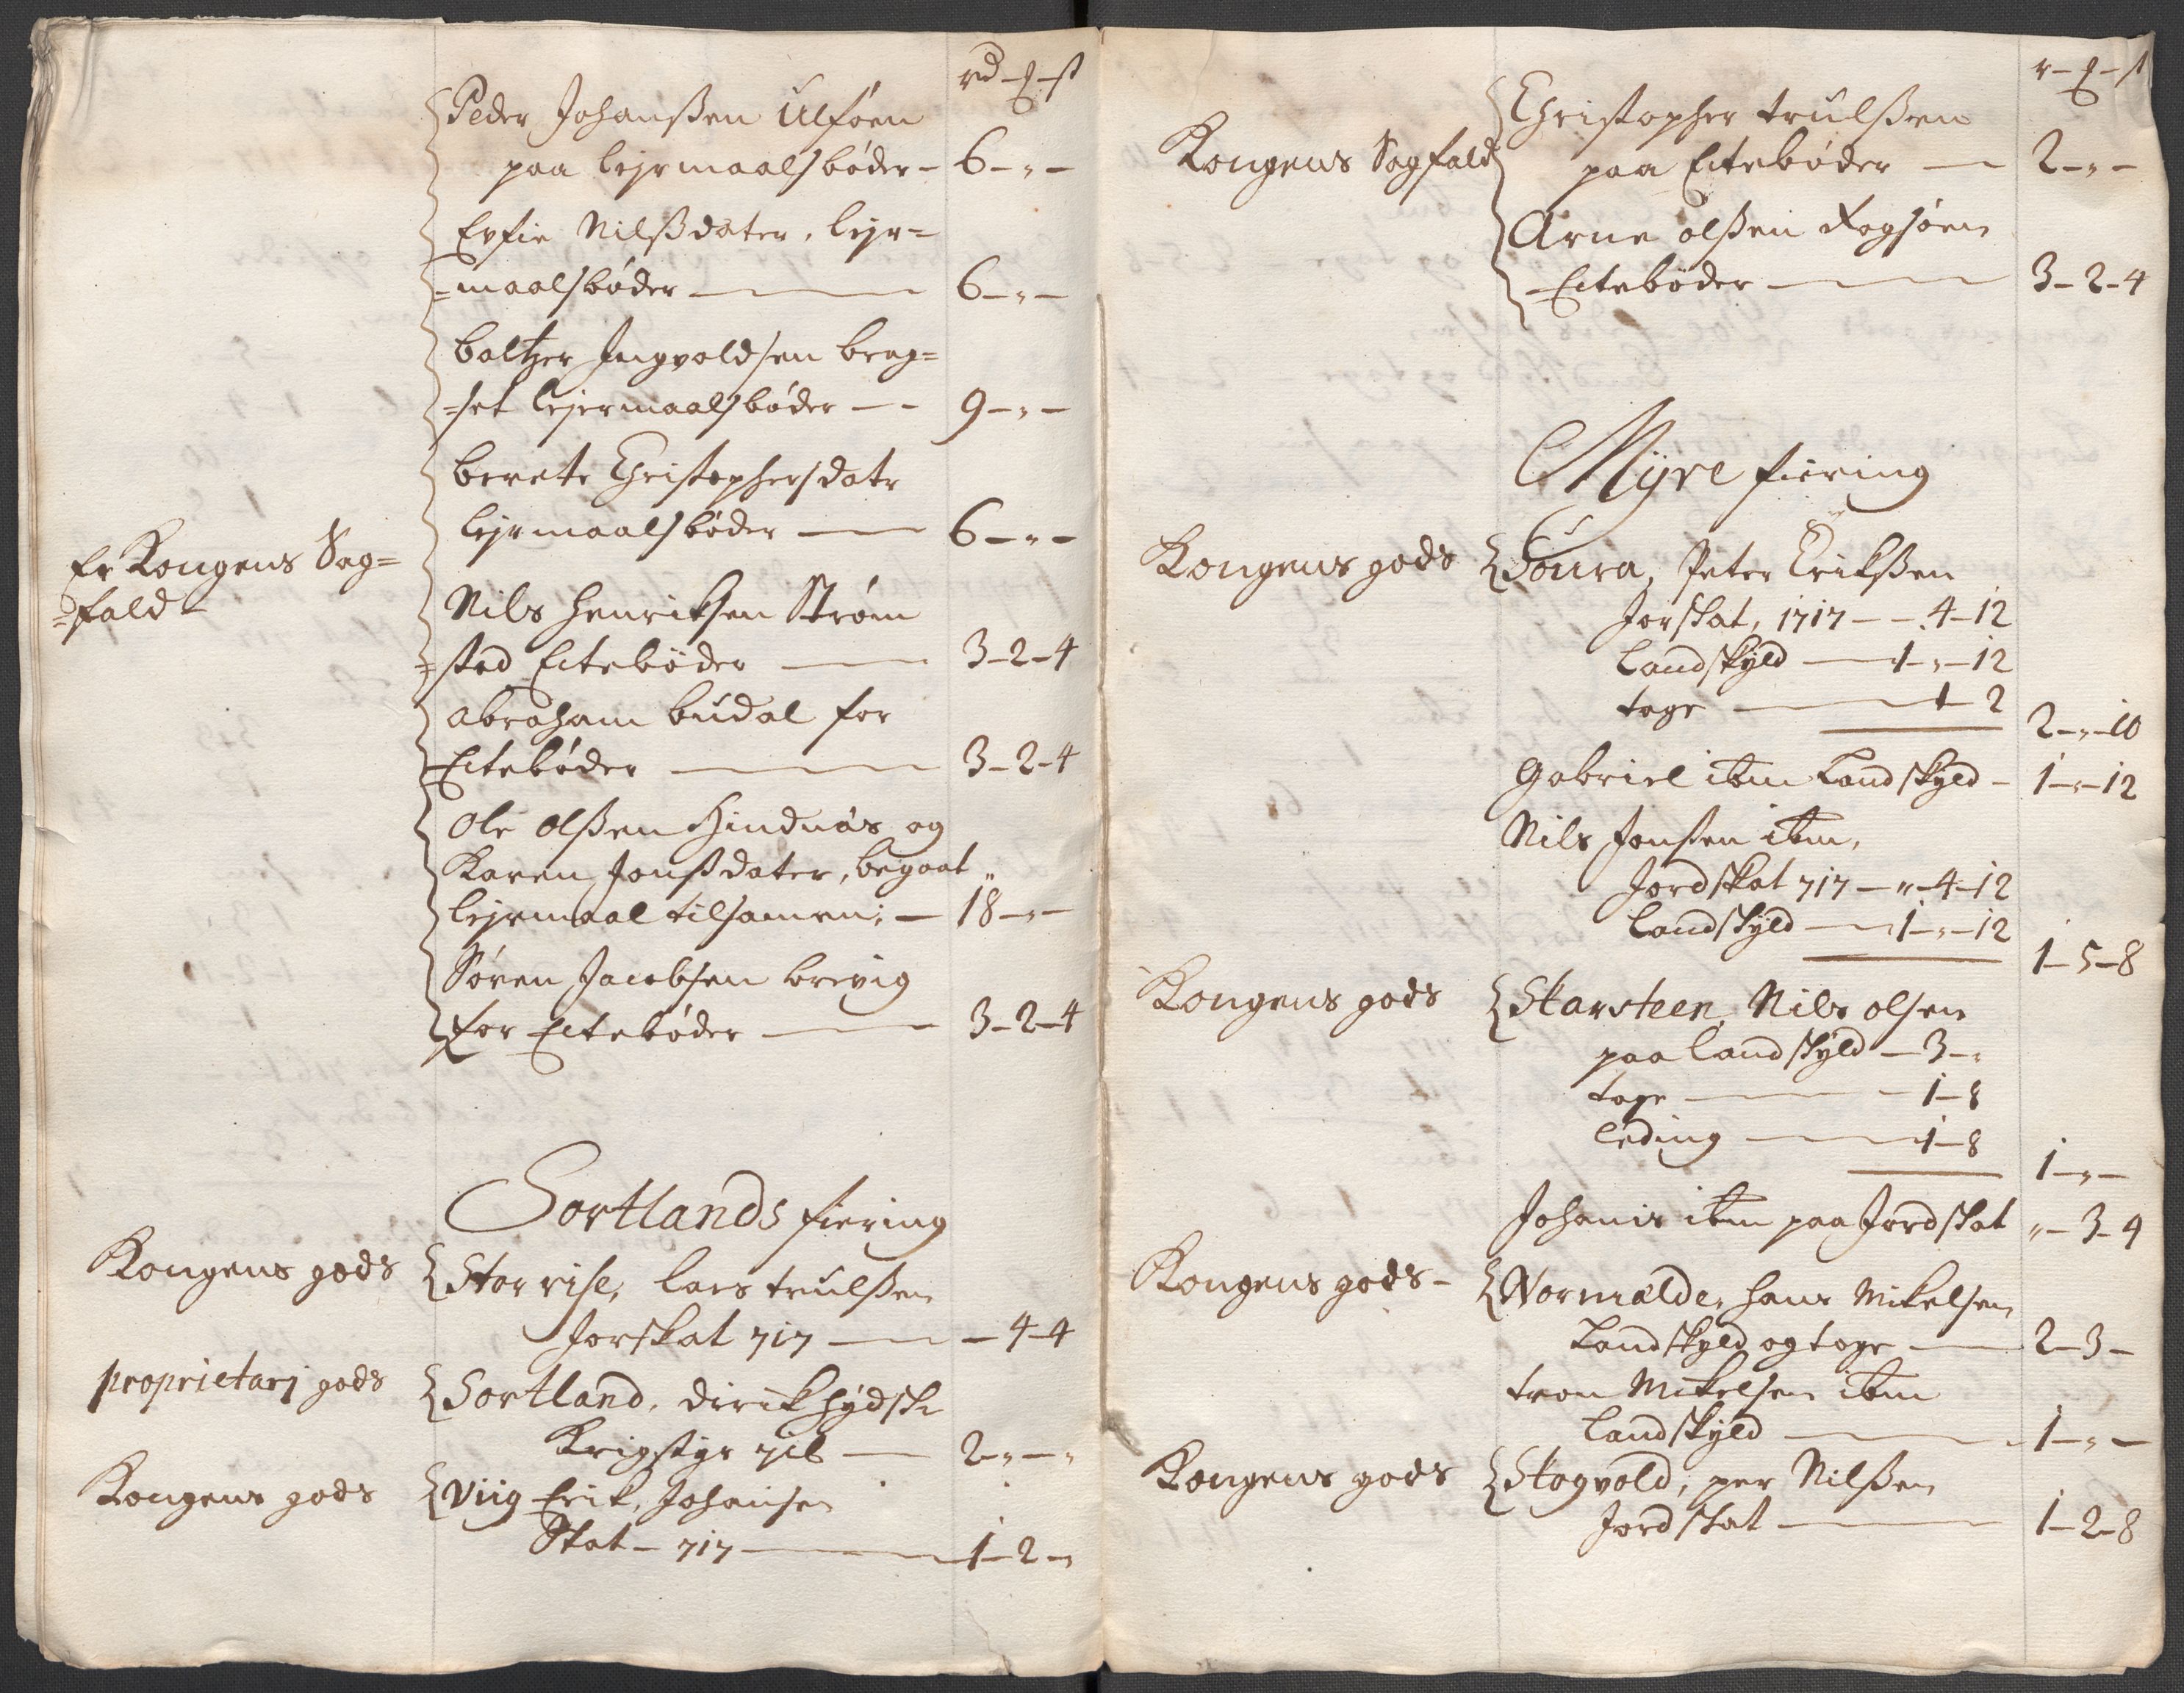 rd - ₰ - ß
Peder Johanßen Ulføen
paa lejrmaalsbøder - 6 - „ -
Epfie Nilßdater, lejr=
=maalsbøder — 6 - „ -
baltzer Ingvoldsen brag=
=set lejermaalsbøder — 9 - „ -
berete Christophersdatr
lejrmaalsbøder — 6 - „ -
Er Kongens Sag=
=fald
Nils Henriksen Strøm
=sted Eitebøder — 3 - 2 - 4
Abraham budal for
Eitebøder — 3 - 2 - 4
Ole olßen Hindnäs og
Karen Jonßdater, begaat „
lejrmaal tilsamen: — 18 - „ -
Søren Jacobsen brevig
for Eitebøder — 3 - 2 - 4
Sortlands fiering
Kongens gods Storrise, lars trulßen
Jorskat 717 — - 4 - 4
proprietarj gods Sortland, dirik hÿdsk
Krigstyr 716 — 2 - „ - „
Kongens gods Viig Erik Johansen
Skat - 717 — 1 - 2 - „
r - ₰ - ß
Kongens Sagfald Christopher trulßen
paa Eitebøder — 2 - „ -
Arne olßen Fogsøen
Eitebøder — 3 - 2 - 4
Myre fiering
Kongens gods Soura, Peter Erikßen
Jorskat, 1717 - - 4 - 12
Landskyld — 1 - „ - 12
tage — 1 - 2
2 - „ - 10
Gabriel ibm Landskyld - 1 - „ - 12
Nils Jonßen ibm,
Jordskat 717 — „ - 4 - 12
Landskÿld — 1 - „ - 12
1 - 5 - 8
Kongens gods Skarsteen, Nils olsen
paa landskyld — 3 - „
tage — 1 - 8
leding — 1 - 8
1 - „ -
Johanis ibm paa Jordskat „ - 3 - 4
Kongens gods - Normælde, hans Mikelsen
Landskyld og tage — 2 - 3 -
tron Mikelsen ibm
Landskyld — 1 - „ -
Kongens gods Skogvold, per Nilßen
Jordskat — 1 - 2 - 8